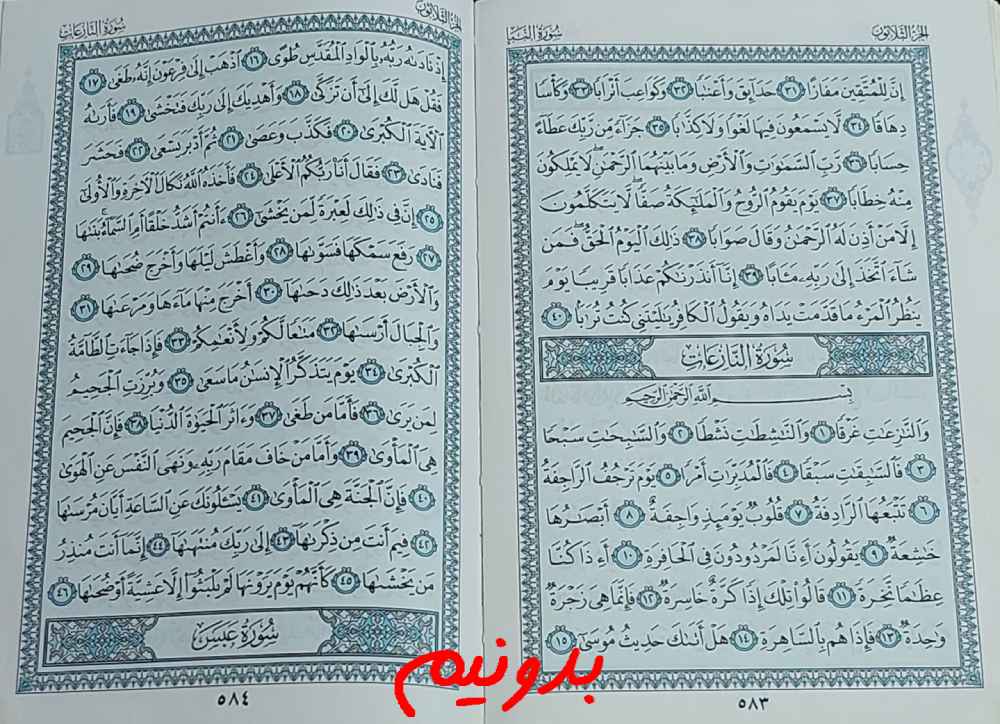 الجزء الثلاثون
سورة النبإ
إِنَّ لِلْمُتَّقِينَ مَفَازًا ٣١ حَدَآئِقَ وَأَعْنَٰبًا ٣٢ وَكَوَاعِبَ أَتْرَابًا ٣٣ وَكَأْسًا
دِهَاقًا ٣٤ لَّا يَسْمَعُونَ فِيهَا لَغْوًا وَلَا كِذَّٰبًا ٣٥ جَزَآءً مِّن رَّبِّكَ عَطَآءً
حِسَابًا ٣٦ رَّبِّ ٱلسَّمَٰوَٰتِ وَٱلْأَرْضِ وَمَا بَيْنَهُمَا ٱلرَّحْمَٰنِ ۖ لَا يَمْلِكُونَ
مِنْهُ خِطَابًا ٣٧ يَوْمَ يَقُومُ ٱلرُّوحُ وَٱلْمَلَٰٓئِكَةُ صَفًّا ۖ لَّا يَتَكَلَّمُونَ
إِلَّا مَنْ أَذِنَ لَهُ ٱلرَّحْمَٰنُ وَقَالَ صَوَابًا ٣٨ ذَٰلِكَ ٱلْيَوْمُ ٱلْحَقُّ ۖ فَمَن
شَآءَ ٱتَّخَذَ إِلَىٰ رَبِّهِۦ مَـَٔابًا ٣٩ إِنَّآ أَنذَرْنَٰكُمْ عَذَابًا قَرِيبًا يَوْمَ
يَنظُرُ ٱلْمَرْءُ مَا قَدَّمَتْ يَدَاهُ وَيَقُولُ ٱلْكَافِرُ يَٰلَيْتَنِى كُنتُ تُرَٰبًۢا ٤٠
سُورَةُ النَّازِعَاتِ
بِسْمِ ٱللَّهِ ٱلرَّحْمَٰنِ ٱلرَّحِيمِ
وَٱلنَّٰزِعَٰتِ غَرْقًا ١ وَٱلنَّٰشِطَٰتِ نَشْطًا ٢ وَٱلسَّٰبِحَٰتِ سَبْحًا
٣ فَٱلسَّٰبِقَٰتِ سَبْقًا ٤ فَٱلْمُدَبِّرَٰتِ أَمْرًا ٥ يَوْمَ تَرْجُفُ ٱلرَّاجِفَةُ
٦ تَتْبَعُهَا ٱلرَّادِفَةُ ٧ قُلُوبٌ يَوْمَئِذٍ وَاجِفَةٌ ٨ أَبْصَٰرُهَا
خَٰشِعَةٌ ٩ يَقُولُونَ أَءِنَّا لَمَرْدُودُونَ فِى ٱلْحَافِرَةِ ١٠ أَءِذَا كُنَّا
عِظَٰمًا نَّخِرَةً ١١ قَالُوا۟ تِلْكَ إِذًا كَرَّةٌ خَاسِرَةٌ ١٢ فَإِنَّمَا هِىَ زَجْرَةٌ
وَٰحِدَةٌ ١٣ فَإِذَا هُم بِٱلسَّاهِرَةِ ١٤ هَلْ أَتَىٰكَ حَدِيثُ مُوسَىٰٓ ١٥
٥٨٣
الجزء الثلاثون
سورة النازعات
إِذْ نَادَىٰهُ رَبُّهُۥ بِٱلْوَادِ ٱلْمُقَدَّسِ طُوًى ١٦ ٱذْهَبْ إِلَىٰ فِرْعَوْنَ إِنَّهُۥ طَغَىٰ ١٧
فَقُلْ هَل لَّكَ إِلَىٰٓ أَن تَزَكَّىٰ ١٨ وَأَهْدِيَكَ إِلَىٰ رَبِّكَ فَتَخْشَىٰ ١٩ فَأَرَىٰهُ
ٱلْـَٔايَةَ ٱلْكُبْرَىٰ ٢٠ فَكَذَّبَ وَعَصَىٰ ٢١ ثُمَّ أَدْبَرَ يَسْعَىٰ ٢٢ فَحَشَرَ
فَنَادَىٰ ٢٣ فَقَالَ أَنَا۠ رَبُّكُمُ ٱلْأَعْلَىٰ ٢٤ فَأَخَذَهُ ٱللَّهُ نَكَالَ ٱلْـَٔاخِرَةِ وَٱلْأُولَىٰٓ
٢٥ إِنَّ فِى ذَٰلِكَ لَعِبْرَةً لِّمَن يَخْشَىٰٓ ٢٦ ءَأَنتُمْ أَشَدُّ خَلْقًا أَمِ ٱلسَّمَآءُ ۚ بَنَىٰهَا
٢٧ رَفَعَ سَمْكَهَا فَسَوَّىٰهَا ٢٨ وَأَغْطَشَ لَيْلَهَا وَأَخْرَجَ ضُحَىٰهَا ٢٩
وَٱلْأَرْضَ بَعْدَ ذَٰلِكَ دَحَىٰهَآ ٣٠ أَخْرَجَ مِنْهَا مَآءَهَا وَمَرْعَىٰهَا ٣١
وَٱلْجِبَالَ أَرْسَىٰهَا ٣٢ مَتَٰعًا لَّكُمْ وَلِأَنْعَٰمِكُمْ ٣٣ فَإِذَا جَآءَتِ ٱلطَّآمَّةُ
ٱلْكُبْرَىٰ ٣٤ يَوْمَ يَتَذَكَّرُ ٱلْإِنسَٰنُ مَا سَعَىٰ ٣٥ وَبُرِّزَتِ ٱلْجَحِيمُ
لِمَن يَرَىٰ ٣٦ فَأَمَّا مَن طَغَىٰ ٣٧ وَءَاثَرَ ٱلْحَيَوٰةَ ٱلدُّنْيَا ٣٨ فَإِنَّ ٱلْجَحِيمَ
هِىَ ٱلْمَأْوَىٰ ٣٩ وَأَمَّا مَنْ خَافَ مَقَامَ رَبِّهِۦ وَنَهَى ٱلنَّفْسَ عَنِ ٱلْهَوَىٰ
٤٠ فَإِنَّ ٱلْجَنَّةَ هِىَ ٱلْمَأْوَىٰ ٤١ يَسْـَٔلُونَكَ عَنِ ٱلسَّاعَةِ أَيَّانَ مُرْسَىٰهَا
٤٢ فِيمَ أَنتَ مِن ذِكْرَىٰهَآ ٤٣ إِلَىٰ رَبِّكَ مُنتَهَىٰهَآ ٤٤ إِنَّمَآ أَنتَ مُنذِرُ
مَن يَخْشَىٰهَا ٤٥ كَأَنَّهُمْ يَوْمَ يَرَوْنَهَا لَمْ يَلْبَثُوٓا۟ إِلَّا عَشِيَّةً أَوْ ضُحَىٰهَا ٤٦
سُورَةُ عَبَسَ
٥٨٤
بدونیم